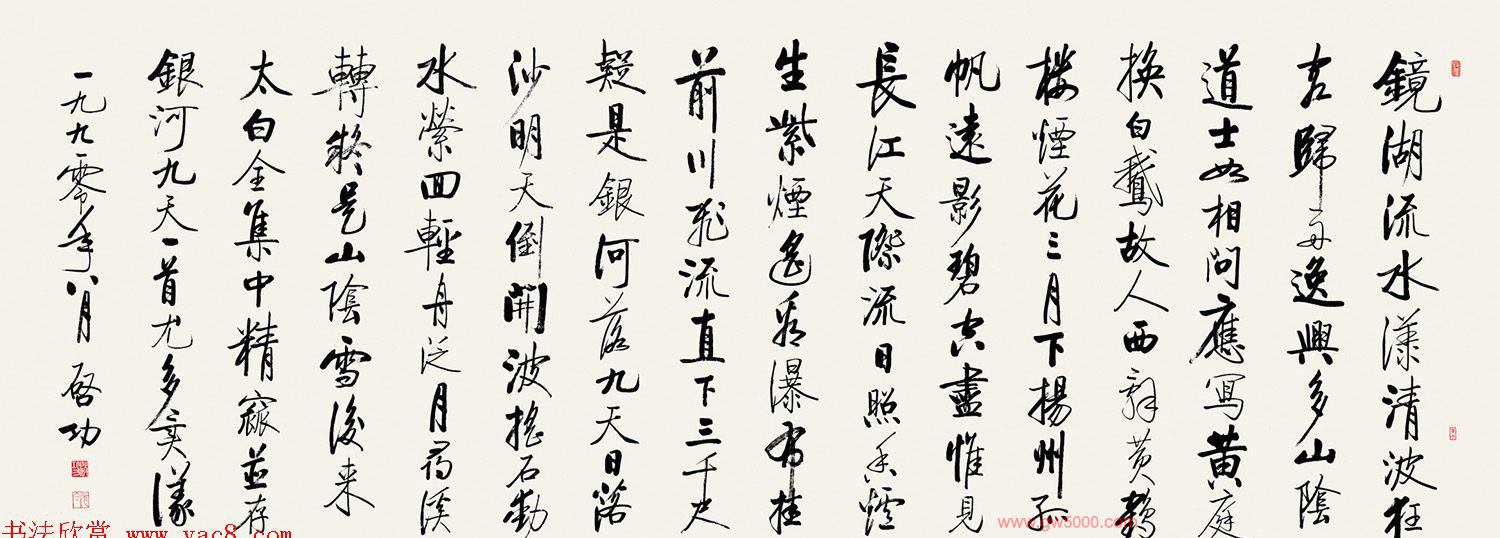 鏡湖流水漾清波狂
客歸舟逸興多山陰
道士如相問應寫黄庭
換白鵝故人西辭黄鶴
樓煙花三月下揚州孤
帆遠影碧空盡惟見
長江天際流日照香爐
生紫煙遙看瀑布挂
前川飛流直下三千尺
疑是銀河落九天日落
沙明天倒開波搖石動
水縈回輕舟泛月尋溪
轉疑是山陰雪後来
太白全集中精窳並存
銀河九天一首尤多
一九九零年八月 启功
书法欣赏 www.yac8.com
www.gw5000.com